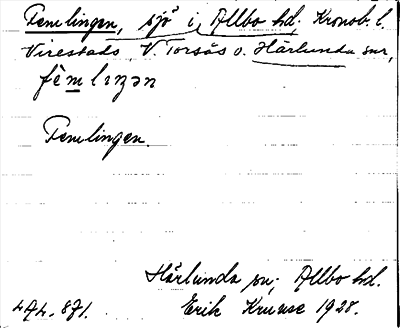 Femlingen, sjö i Allbo hd, Kronob. l.
Virestads, V. Torsås o. Härlunda snr,
fèmlıŋən
Femlingen.
Härlunda sn, Allbo hd.
Erik Kruuse 1928.